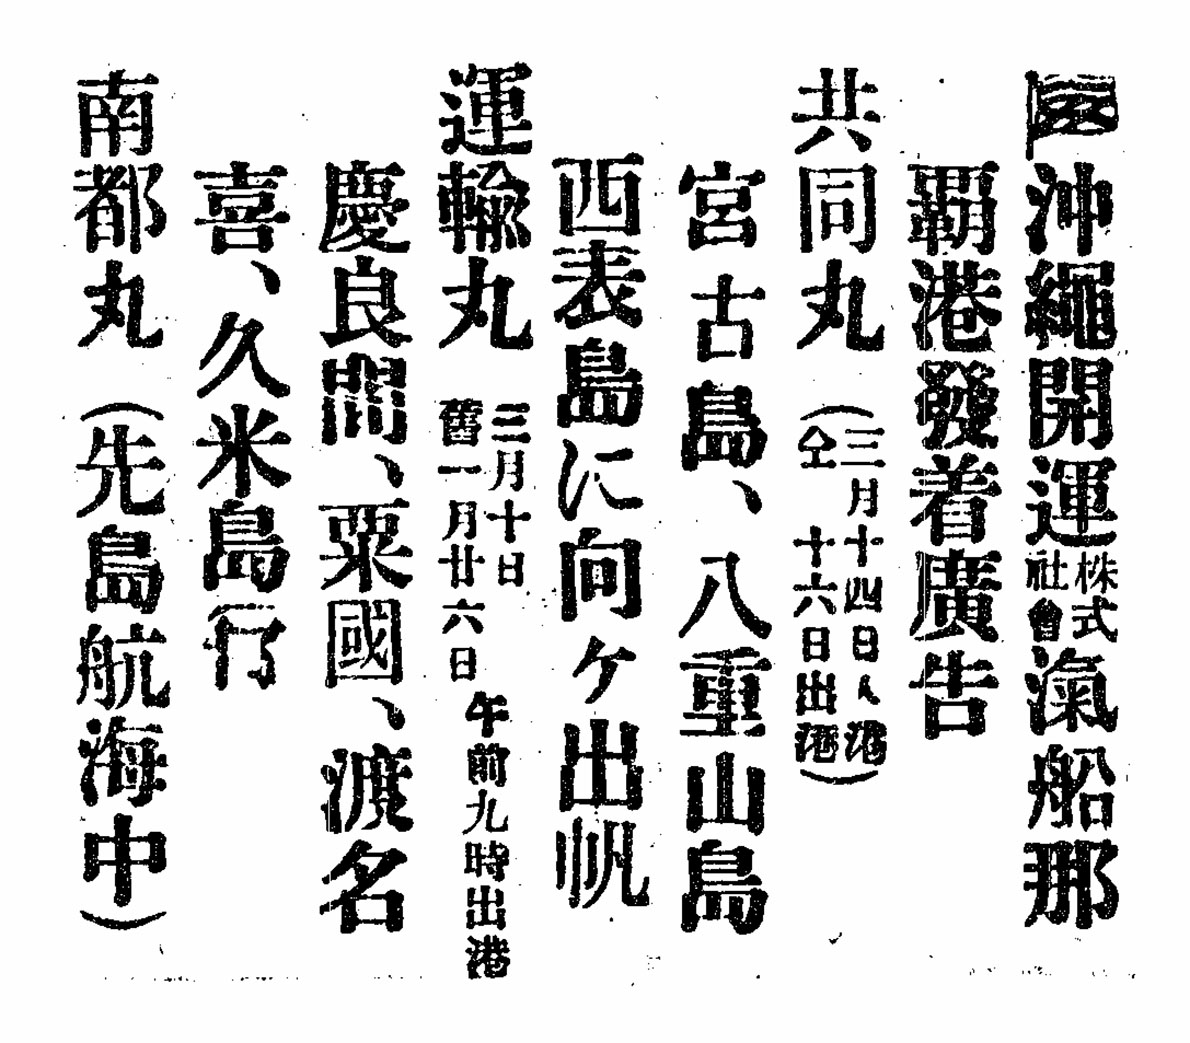 沖繩開運株式會社滊船那
覇港發着廣告
共同丸（三月十四日入港仝十六日出港）
宮古島、八重山島
西表島に向ケ出帆
運輸丸 三月十日舊一月廿六日午前九時出港
慶良間、粟國、渡名
喜、久米島行
南都丸（先島航海中）